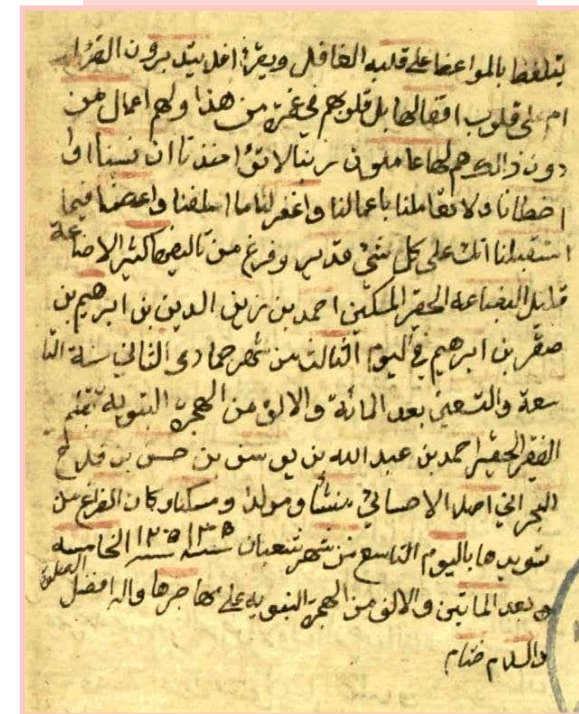 يتلفظ بالمواعظ على قلبه الغافل ويقرأ افلا يتدبرون القرآن
ام على قلوب اقفالها بل قلوبهم في غمرة من هذا ولهم اعمال من
دون ذالك هم لها عاملون ربنا لا تؤاخذنا ان نسينا او
اخطانا ولا تعاملنا باعمالنا واغفر لنا ما اسلفنا واعصمنا فيما
استقبلنا انك على كل شيء قدير وفرغ من تاليفها كثير الاضاعة
قليل البضاعه الحقير المسكين احمد بن زين الدين بن ابرهيم بن
صقر بن ابرهيم في اليوم الثالث من شهر جمادى الثاني سنة التا
سعة والتسعين بعد المائة والالف من الهجرة النبوية بقلم
الفقير الحقير احمد بن عبد الله بن يوسف بن حسن بن فلاح
البحراني اصلا الاحسائي منشأ ومولدا ومسكنا وكان الفراغ من
تسويدها باليوم التاسع من شهر شعبان سنة الخامسه
بعد الماتين والالف من الهجرة النبويه على مهاجرها واله افضل الصلوة
والسلام ختام